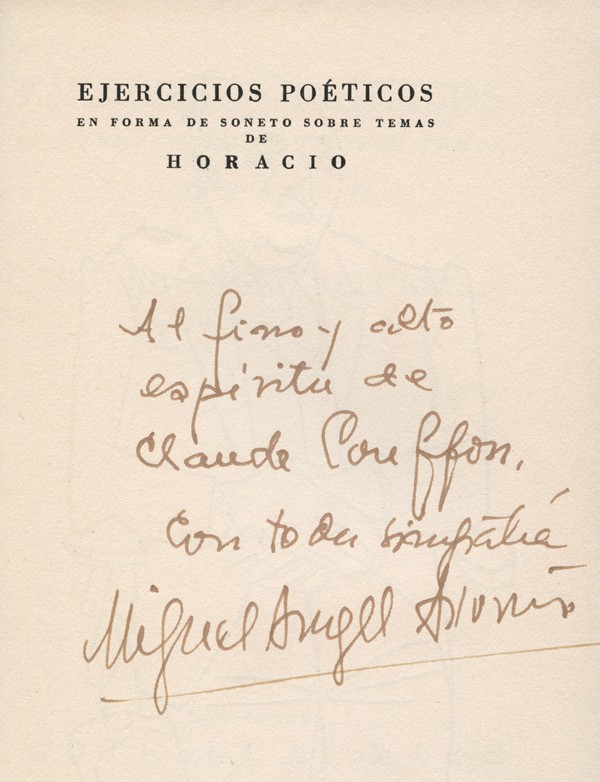 EJERCICIOS POÉTICOS
EN FORMA DE SONETO SOBRE TEMAS
DE
HORACIO
Al fino y alto
espíritu de
Claude Couffon,
con toda simpatía
Miguel Angel Asturias